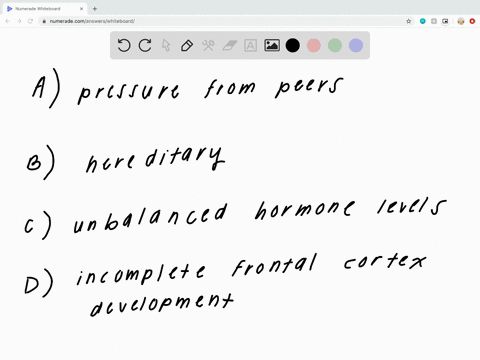 Numerade Whiteboard
numerade.com/answers/whiteboard/
A) pressure from peers
B) hereditary
C) unbalanced hormone levels
D) incomplete frontal cortex
development